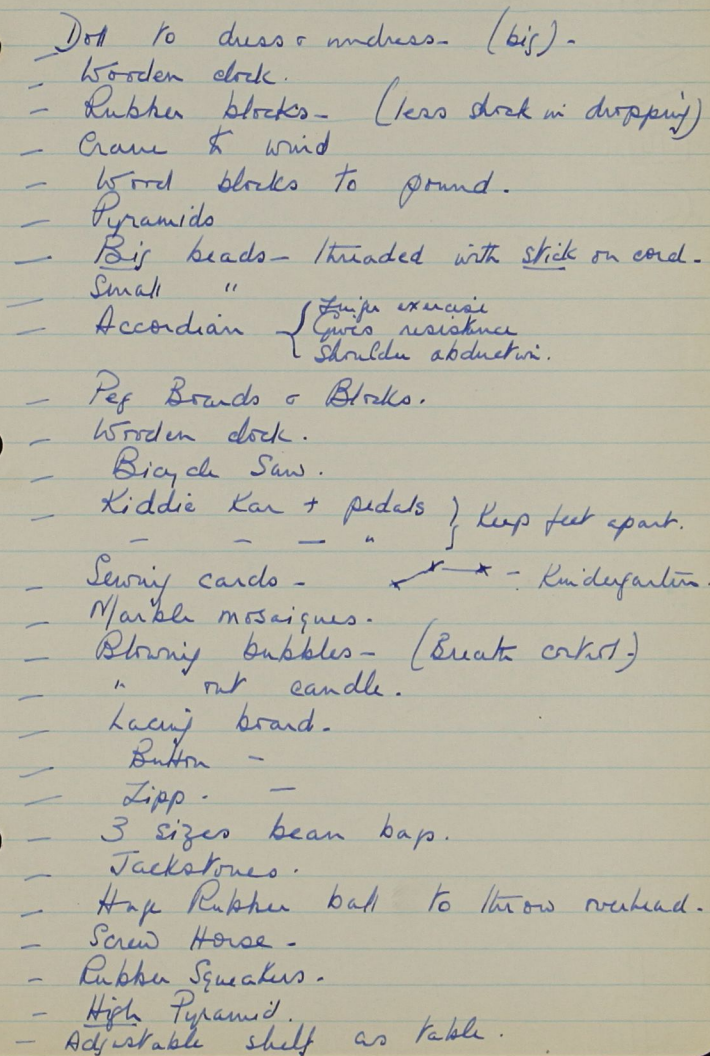 Doll to dress & undress - (big) -
- Wooden clock.
- Rubber blocks - (less shock in dropping)
- Crane to wind
- Wood blocks to pound.
- Pyramids
- Big beads - threaded with stick on cord.
- Small "
- Accordian { Finger exercise
Gives resistance
Shoulder abduction.
- Peg Boards & Blocks.
- Wooden clock.
- Bicycle Saw.
- Kiddie Kar + pedals } Keep feet apart.
- - - "
- Sewing cards - - Kindergarten.
- Marble mosaiques.
- Blowing bubbles - (Breath control -)
- " out candle.
- Lacing board.
- Button -
- Zipp. -
- 3 sizes bean bags.
- Jackstones.
- Huge Rubber ball to throw overhead.
- Screw Horse -
- Rubber Squeakers.
- High Pyramid.
- Adjustable shelf as table.